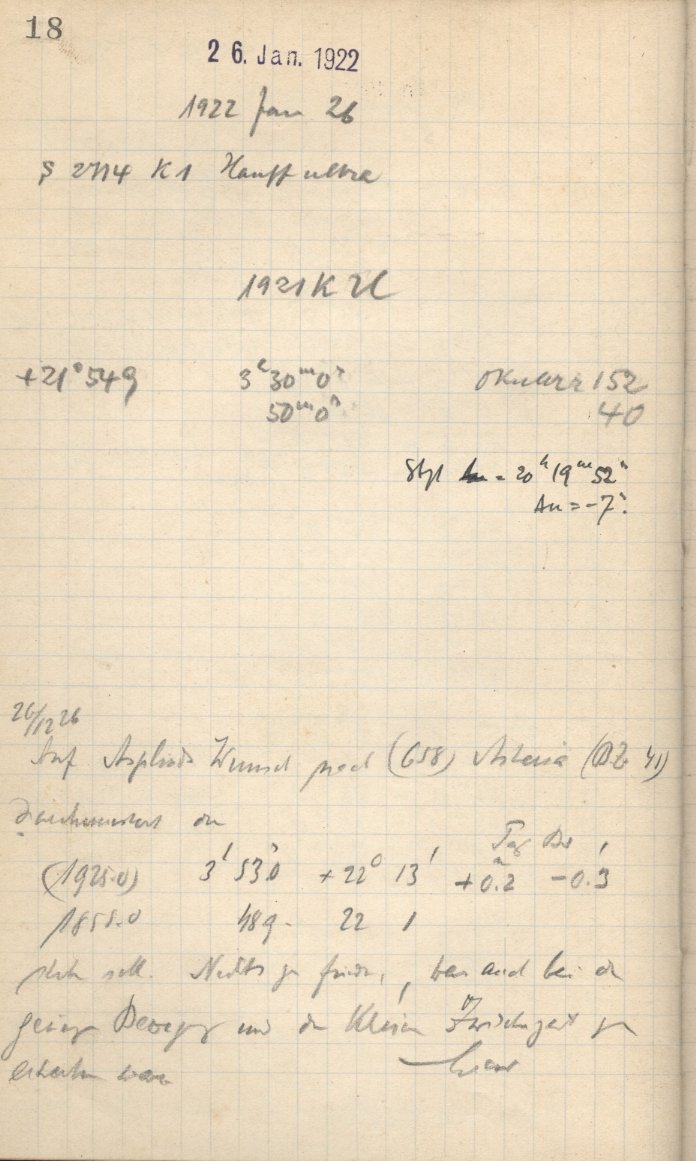 18
26. Jan. 1922
1922 Jan 26
2774 K1 Hauff ultra
1921 K
+21° 549 3ʰ 30ᵐ 0ˢ Okular 152
50ᵐ 0ˢ 40
= 20ʰ 19ᵐ 52ˢ
Δu = -7ˢ.
26/12 26
Auf Asplinds Wunsch nach (658) Asteria (BZ 41)
durchmustert die
Tag
(1925.0) 3 53.0 +22° 13' +0.2 -0.3
1855.0 48.9 22 1
soll. Nichts zu finden, was auch bei der
geringen Bewegung und der kleinen Zwischenzeit zu
erwarten war